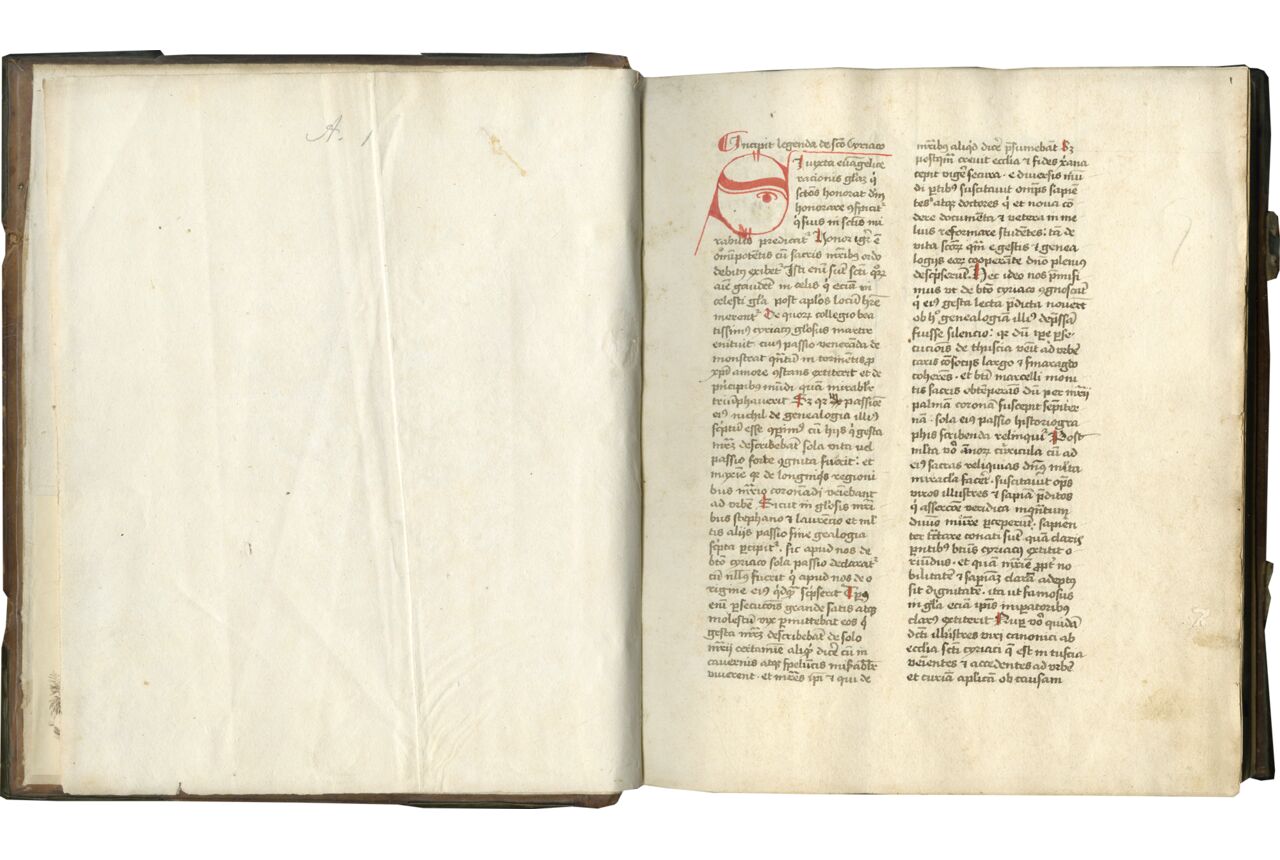 A. 1
1
Incipit legenda de sco Cyriaco
Iuxta euāgelice
racionis glaz q̇
sctos honorat dm̄
honorare ꝯspicit᷑
q̇ siuis in sctis mi
rabilis predicat᷑ Honor igr̄ ē
om̄ipotētis cū sacris mr̄ibꝰ ordo
debitꝰ exibet᷑ Isti enī sūt scti qͦꝝ
aīe gaudēt in celis q̇ eciā in
celesti gl̄a post aplōs locū hr̄e
merent᷑ De quoꝝ collegio bea
tissimꝰ cyriacꝰ gl̄osus martir
enituit cuiꝰ passio venerāda de
monstrat qn̄tū in tormētis ꝓ
xpī amore ꝯstans extiterit et de
principibꝰ mūdi quā mirabilr̄
triūphauerit Sꝫ qꝛ passiōe
eiꝰ nichil de genealogia illiꝰ
sc̄ptū esse ꝯperimꝰ cū hijs q̇ gesta
mr̄ꝝ describebāt sola vita vel
passio forte ꝯgnita fuerit : et
maxīe qꝛ de longīqͥs regioni
bus mr̄io coronādi veīebant
ad vrbē Sicut in gl̄osis mr̄i
bus stephano et laurēcio et ml̄
tis alijs passio sine gealogia
sc̄pta ꝑcipit᷑. sic apud nos de
btō cyriaco sola passio declarat᷑
cū nll̄ꝰ fuerit q̇ apud nos de o
rigine eiꝰ qͥdqͣ sc̄pserit Tp̄ꝰ
enī ꝑsecucōis grande satis atqꝫ
molestū vix ꝑmittebat eos q̇
gesta mr̄ꝝ describebāt de solo
mr̄ij certamīe aliqͥd dicē cū in
cauernis atqꝫ speluncis mīsabilr̄
viuerent . et mr̄es ipī ⁊ qui de
mr̄ibus aliqͥd dicē p̄sumebāt Sꝫ
postqͣm creuit ecclīa ⁊ fides xana
cepit vigē secura . e diuersis mū
di ꝑtibꝰ suscitauit om̄ps sapiē
tes atqꝫ doctores q̇ et noua cō
dere documēta ⁊ vetera in me
lius reformare studētes : tā de
vita sctoꝝ qͣm e gestis ⁊ genea
logijs eoꝝ cooperāte dn̄o plenius
desc̄pserūt. Hec ideo nos p̄misi
mus vt de btō cyriaco ꝯgnoscāt
q̇ eiꝰ gesta lecta p̄dicta nouerīt
ob hͦ genealogiā illiꝰ dep̄ssā
fuisse silencio : qꝛ dū ip̄e ꝑse
cuciōis de thuscia veīt ad vrbē
caris cōsocijs largo ⁊ smaragdo
coherēs . et bti marcelli moni
tis sacris obtēperās dū per mr̄ij
palmā coronā suscepit sēpiter
nā . sola eiꝰ passio historiogra
phis scribenda relinquit᷑ Post
ml̄ta vͦ ānoꝝ curricula cū ad
eiꝰ sacras reliquias dn̄ꝰ ml̄ta
miracla facēt . suscitauit op̄s
viros illustres ⁊ sapīa p̄ditos
q̇ assercōe veridica inqͣntum
diuīo mūre ꝑceperūt . sapien
ter tractare conati sūt quā claris
parentibꝰ btūs cyriacꝰ extitit o
riūdus . et quā mr̄ie ꝓpt̄ no
bilitatē ⁊ sapīaꝫ clarā adeptꝰ
sit dignitatē . ita ut famosus
in gl̄a eciā ip̄is īm̄patoribus
clarꝰ extiterit Nuꝑ vͦ quidā
dc̄ti illustres viri canonici ab
ecclīa scti cyriaci q̄ est in tuscia
veīentes ⁊ accedentes ad vrbē
et curiā apl̄icā ob causam